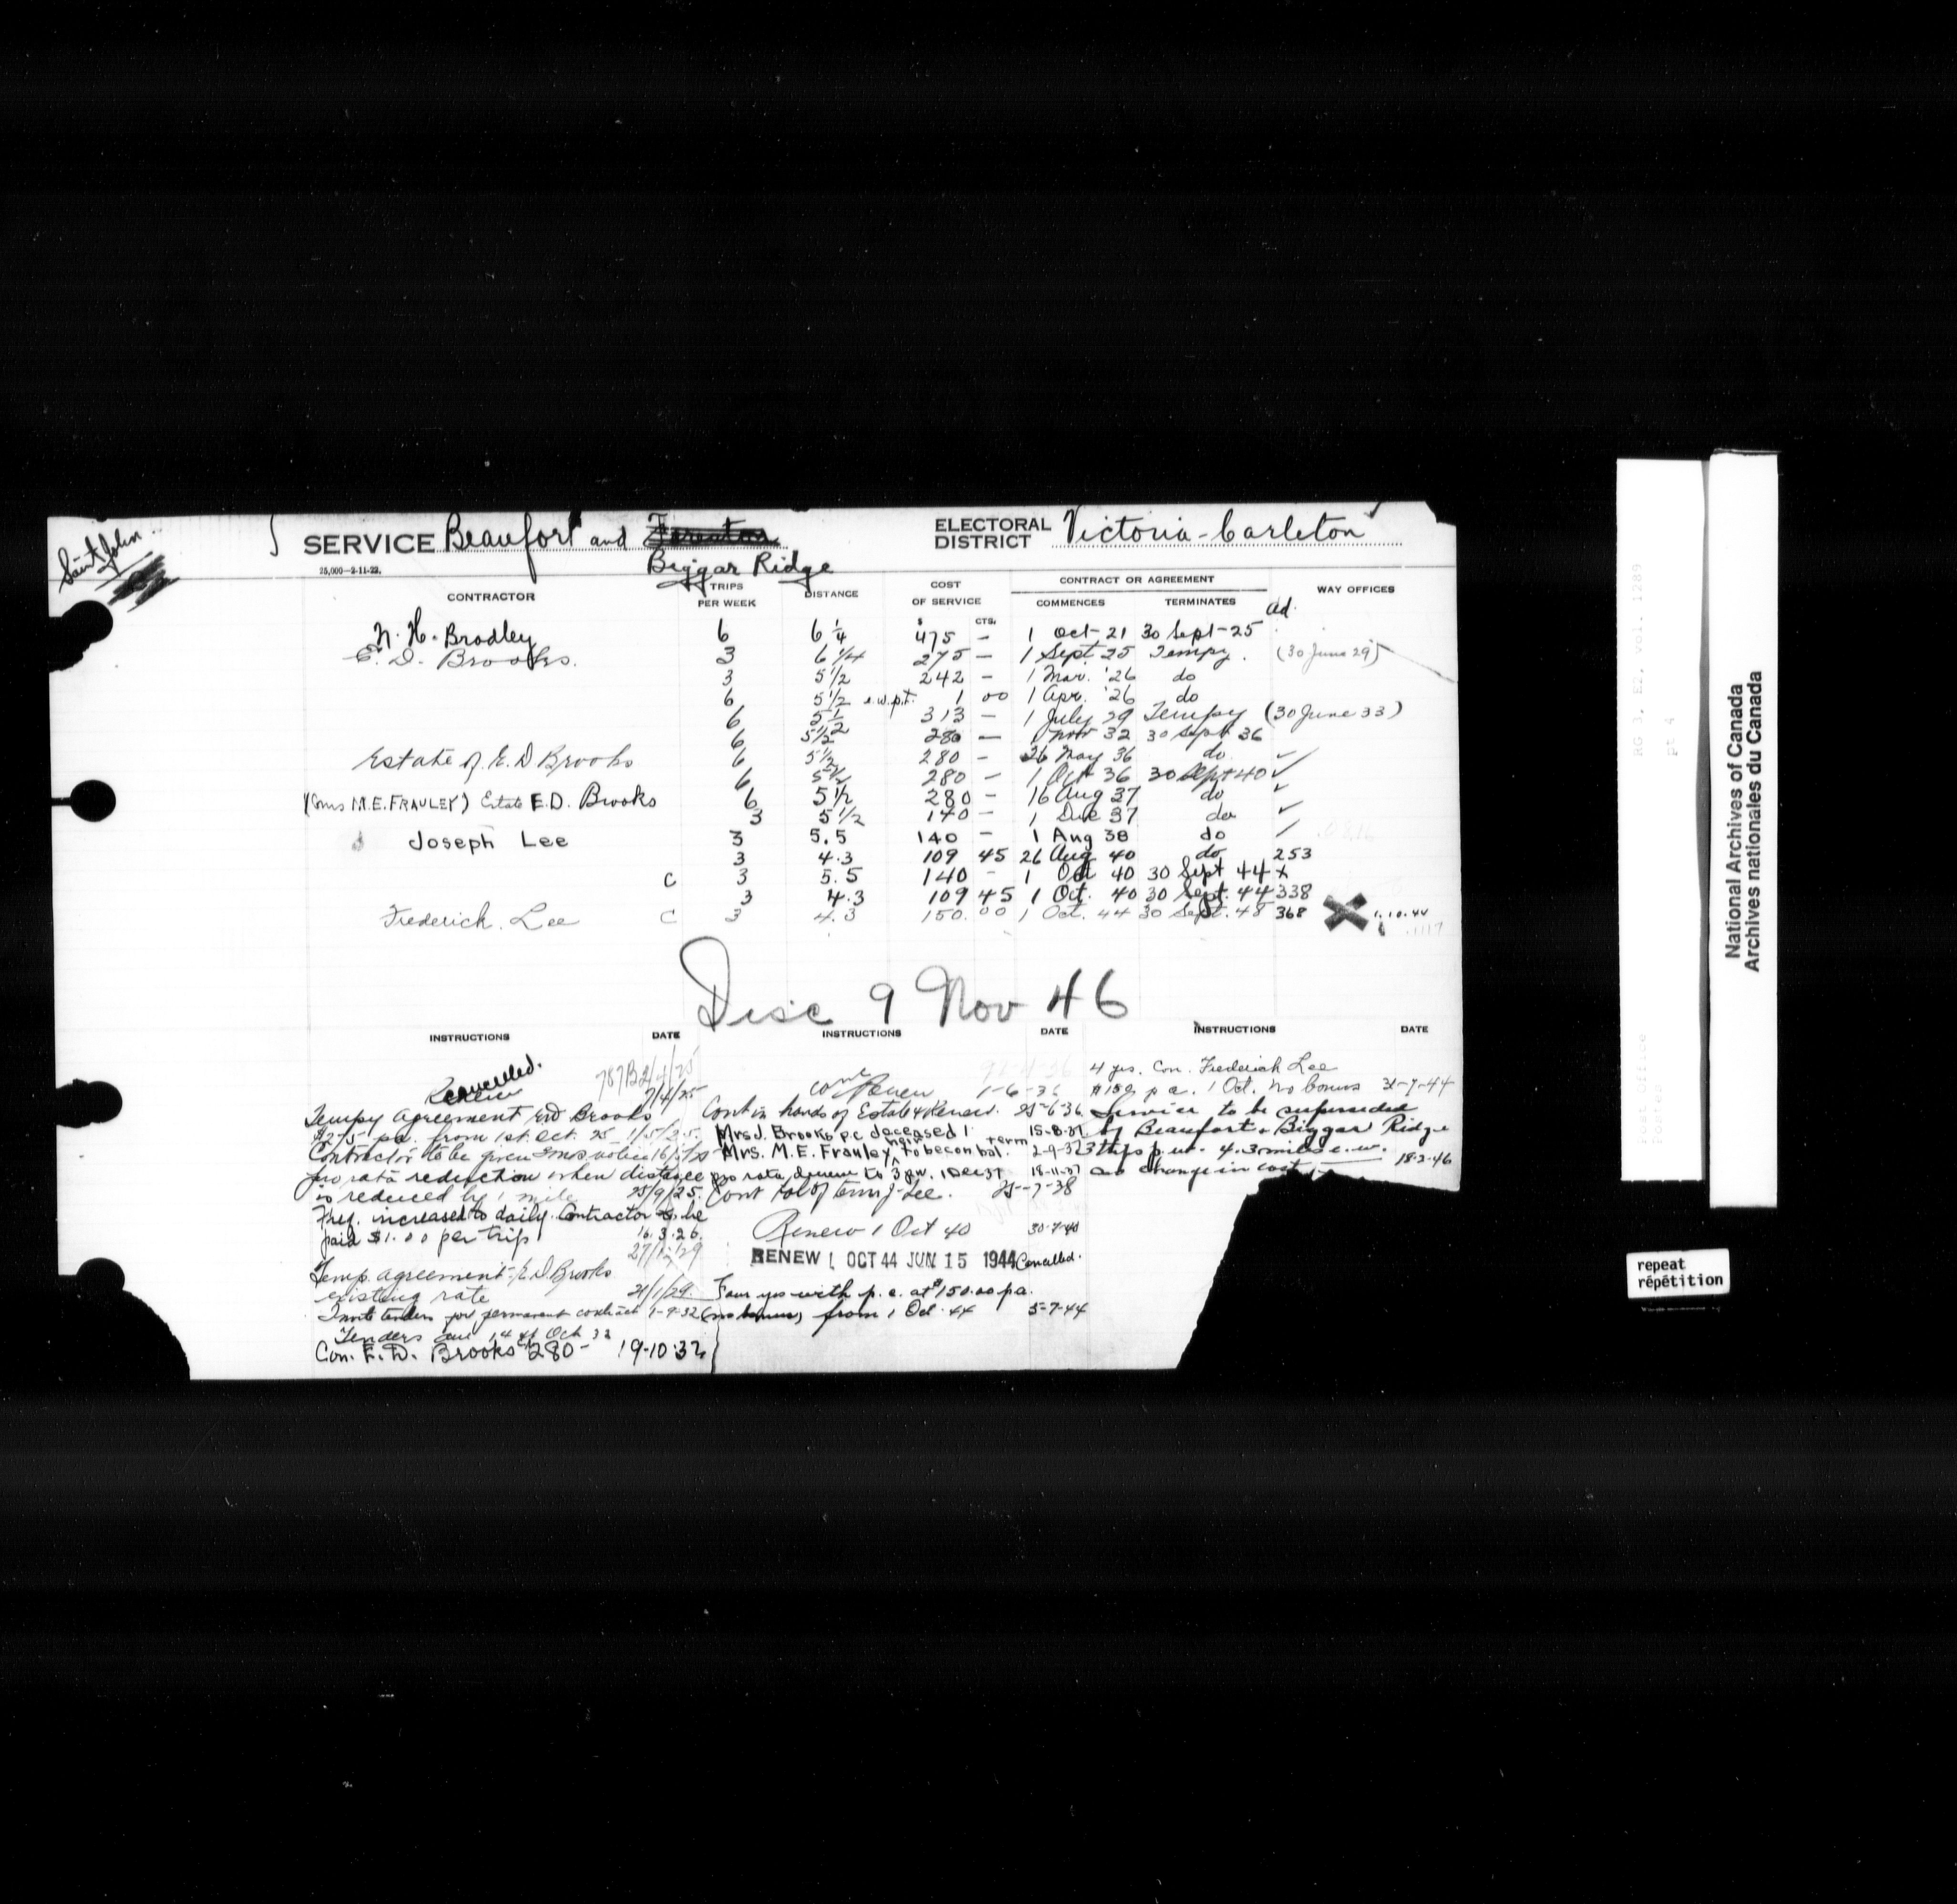 Saint John
SERVICE Beaufort and
Biggar Ridge
ELECTORAL DISTRICT Victoria-Carleton
25,000—2-11-22.
CONTRACTOR TRIPS PER WEEK DISTANCE COST OF SERVICE CONTRACT OR AGREEMENT WAY OFFICES
COMMENCES TERMINATES
$ CTS. ad.
N. H. Bradley 6 6 1/4 475 — 1 Oct-21 30 Sept-25
E. D. Brooks. 3 6 1/4 275 — 1 Sept 25 Tempy. (30 June 29)
3 5 1/2 242 — 1 Mar. '26 do
6 5 1/2 e.w.p.t. 1 00 1 Apr. '26 do
6 5 1/2 313 — 1 July 29 Tempy (30 June 33)
6 5 1/2 280 — 1 Nov 32 30 Sept 36
Estate of E. D Brooks 6 5 1/2 280 — 26 May 36 do ✓
6 5 1/2 280 — 1 Oct 36 30 Sept 40 ✓
(Mrs M.E. FRAULEY) Estate E.D. Brooks 6 5 1/2 280 — 16 Aug 37 do ✓
3 5 1/2 140 — 1 Dec 37 do ✓
Joseph Lee 3 5.5 140 — 1 Aug 38 do ✓
3 4.3 109 45 26 Aug 40 do 253
C 3 5.5 140 - 1 Oct 40 30 Sept 44 x
3 4.3 109 45 1 Oct. 40 30 Sept. 44 338
Frederick. Lee C 3 4.3 150.00 1 Oct. 44 30 Sept. 48 368 1.10.44
Disc 9 Nov 46
INSTRUCTIONS DATE INSTRUCTIONS DATE INSTRUCTIONS DATE
Cancelled.
Renew 7/4/25
Tempy Agreement E.D Brooks
pa. from 1st. Oct. 25
Contractor to be given 3 mos notice
pro rata reduction when distance
is reduced by 1 mile 25/9/25.
Freq. increased to daily. Contractor to be
paid $1.00 per trip 16.3.26.
Temp. agreement E.D. Brooks
existing rate 31/1/29.
Invite tenders for permanent contract 1-9-32
Tenders due 14 Oct 32
Con. E. D. Brooks $280- 19-10-32
Renew 1-6-36
Cont in hands of Estate & Renew. 25-6-36.
Mrs J. Brooks p.c deceased 15-8-37
Mrs. M.E. Frauley heir to be con bal. term 2-9-37
pro rata decrease to 3 p.w. 1 Dec 37 18-11-37
Cont bal of term J. Lee. 25-7-38
Renew 1 Oct 40 30-7-40
RENEW 1 OCT 44 JUN 15 1944 Cancelled.
Four yrs with p. c. at $150.00 pa.
(no bonus) from 1 Oct. 44 5-7-44
4 yrs. Con. Frederick Lee
$150 p a. 1 Oct. No bonus 31-7-44
Service to be superseded
by Beaufort & Biggar Ridge
3 trips p. w. 4.3 miles e. w.
no change in cost 18-2-46
National Archives of Canada
Archives nationales du Canada
RG 3, E2, vol. 1289
pt 4
Post Office
repeat
répétition